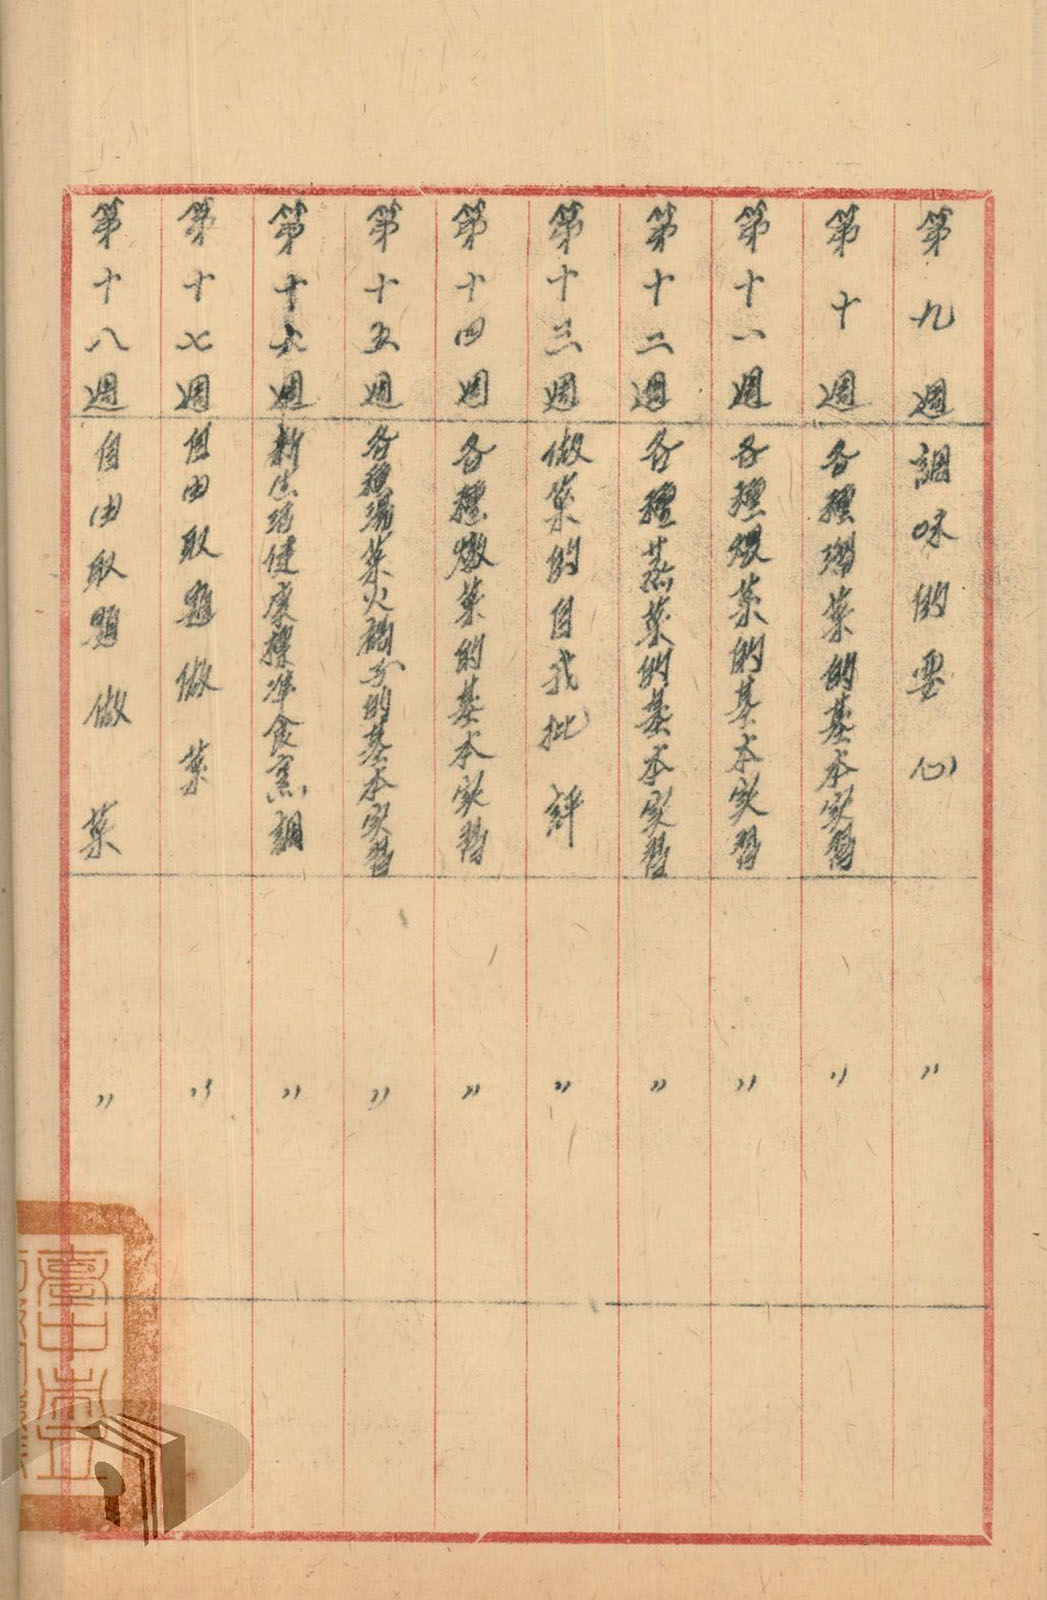 第九週 調味的要心 〃
第十週 各種溜菜的基本实習 〃
第十一週 各種煨菜的基本实習 〃
第十二週 各種蒸菜的基本实習 〃
第十三週 做菜的自我批評 〃
第十四週 各種燉菜的基本实習 〃
第十五週 各種湯菜火候 的基本实習 〃
第十六週 新生活健康標準食烹調 〃
第十七週 自由取題做菜 〃
第十八週 自由取題做菜 〃
臺中市立